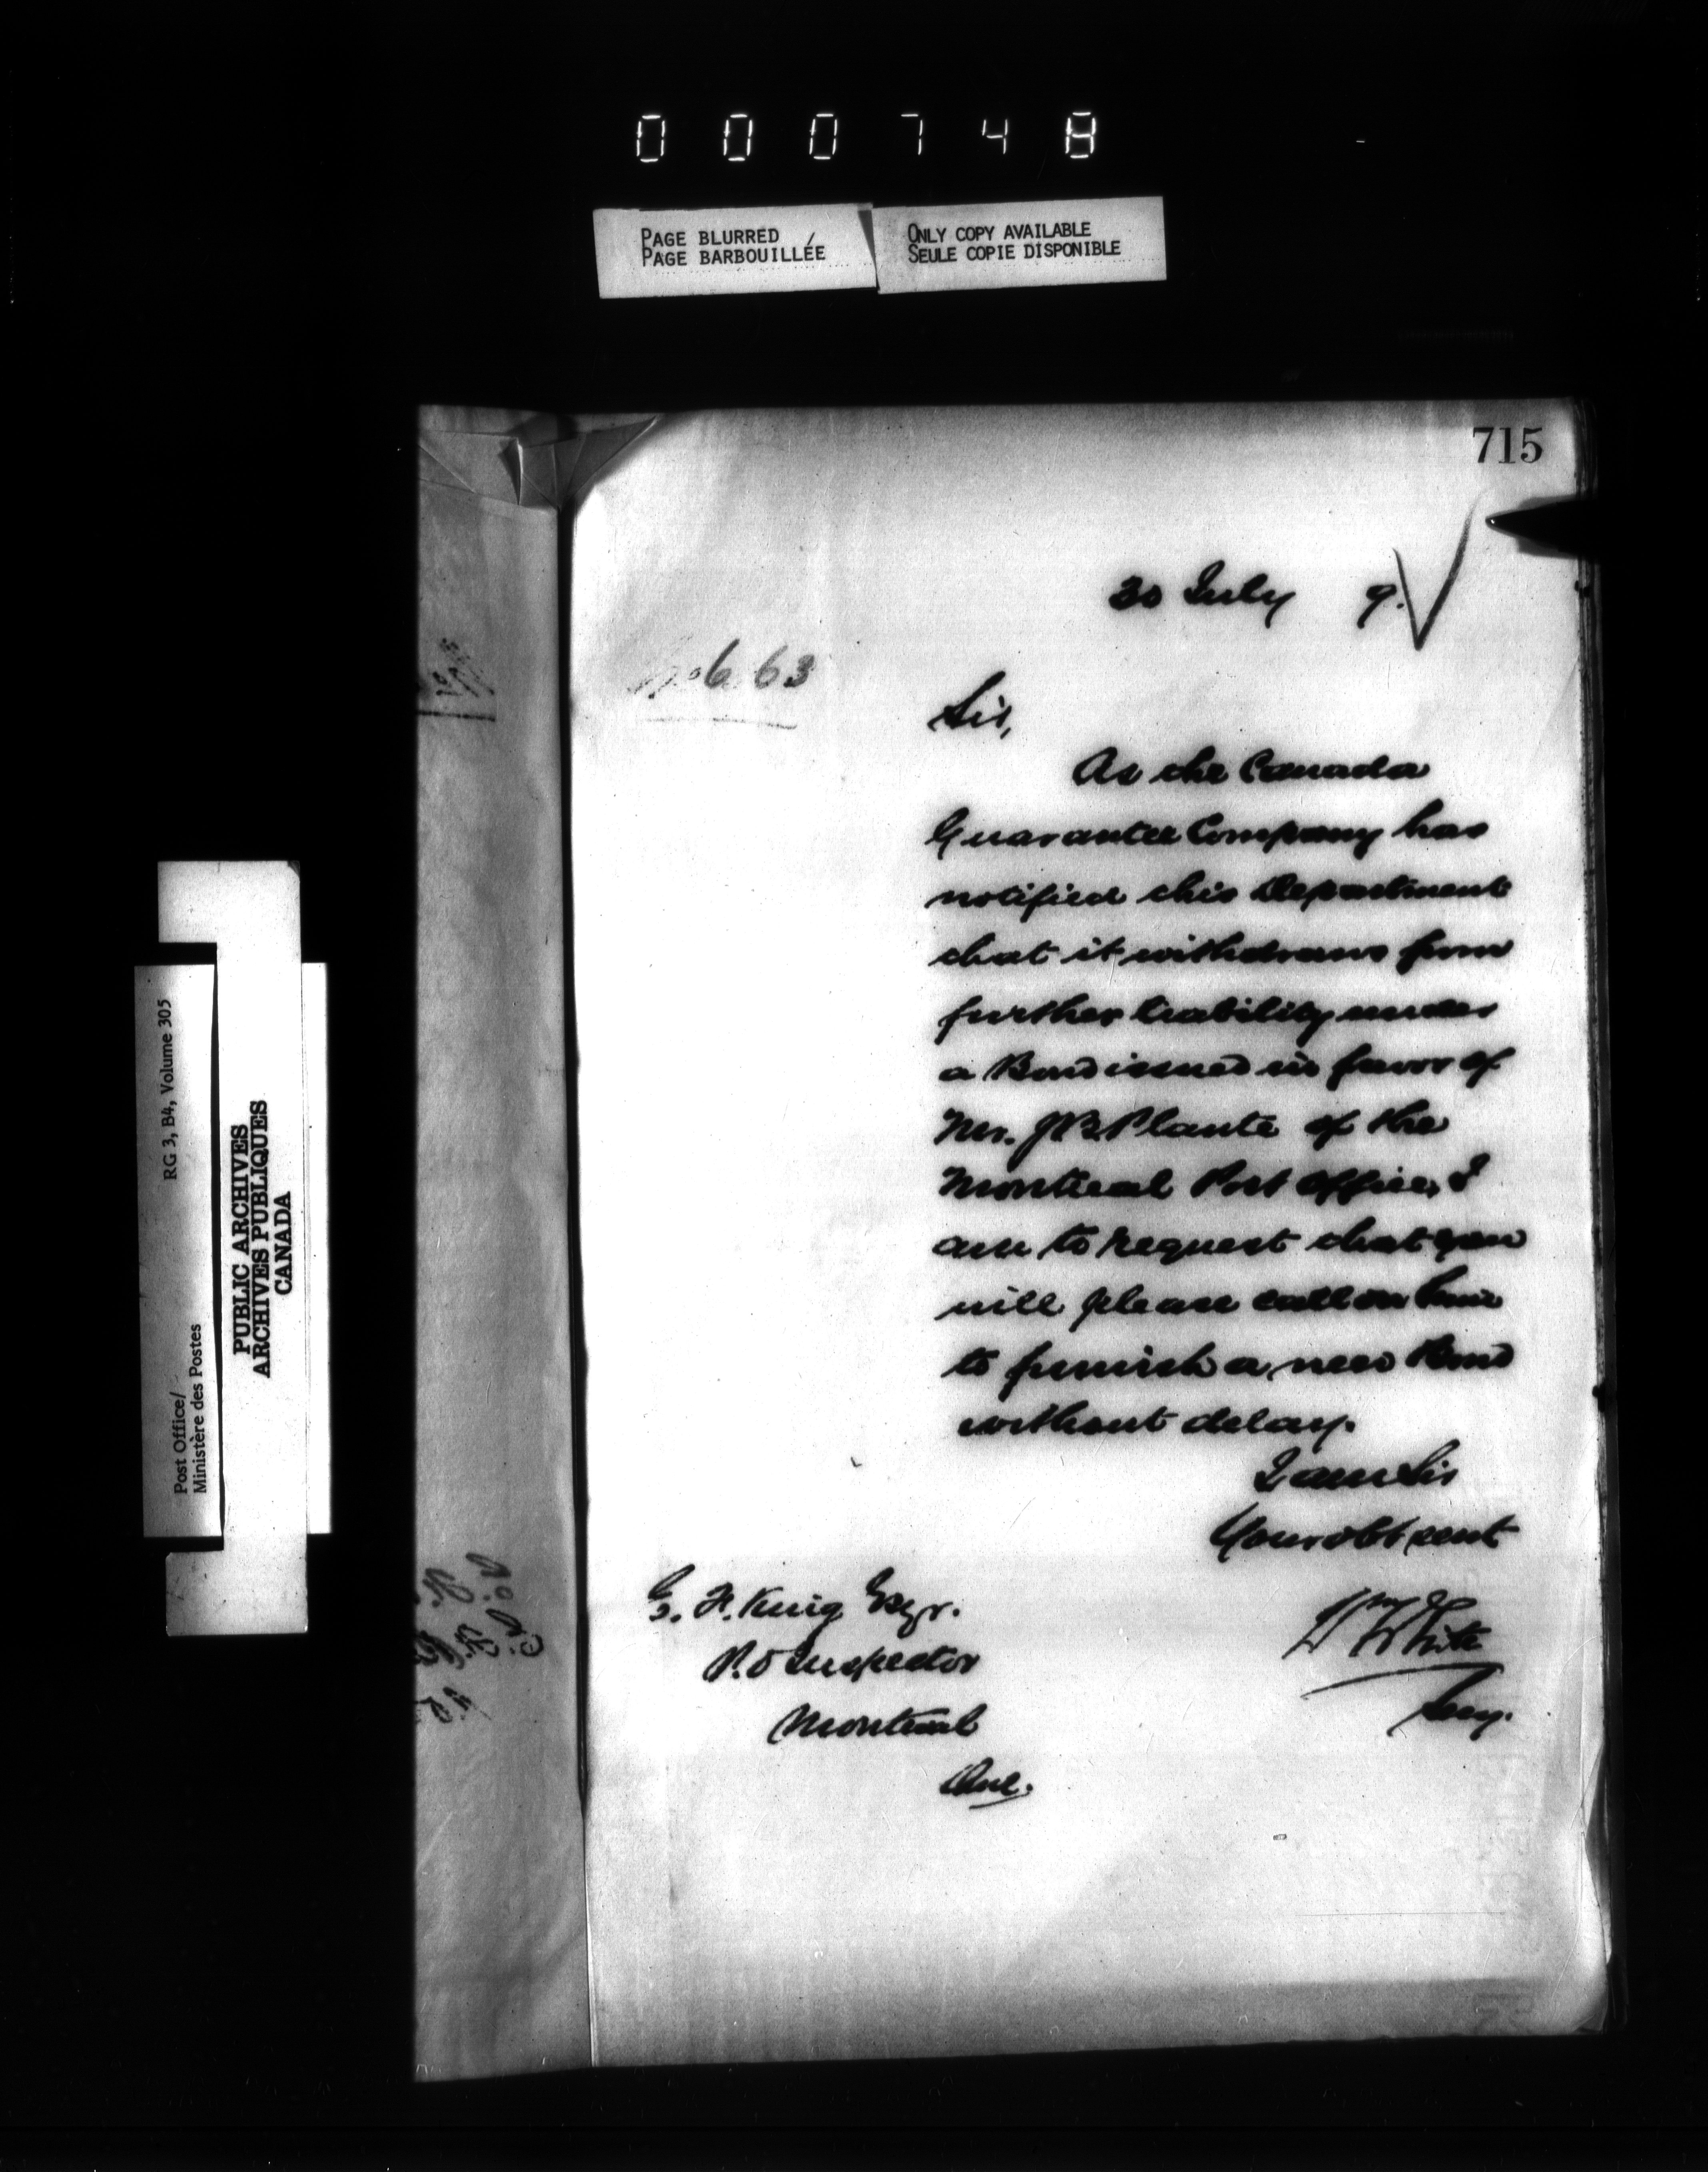 000748
PAGE BLURRED
PAGE BARBOUILLÉE
ONLY COPY AVAILABLE
SEULE COPIE DISPONIBLE
715
30 July 9.
No 663
Sir,
As the Canada
Guarantee Company has
notified this Department
that it withdraws from
further liability under
a Bond issued in favor of
Mr. J B Plante of the
Montreal Post Office, I
am to request that you
will please call on him
to furnish a new Bond
without delay.
I am Sir
Your obt sevt
Wm White
Secy.
G. H. King Esqr.
P.O Inspector
Montreal
Que.
Post Office/ RG 3, B4, Volume 305
Ministère des Postes
PUBLIC ARCHIVES
ARCHIVES PUBLIQUES
CANADA